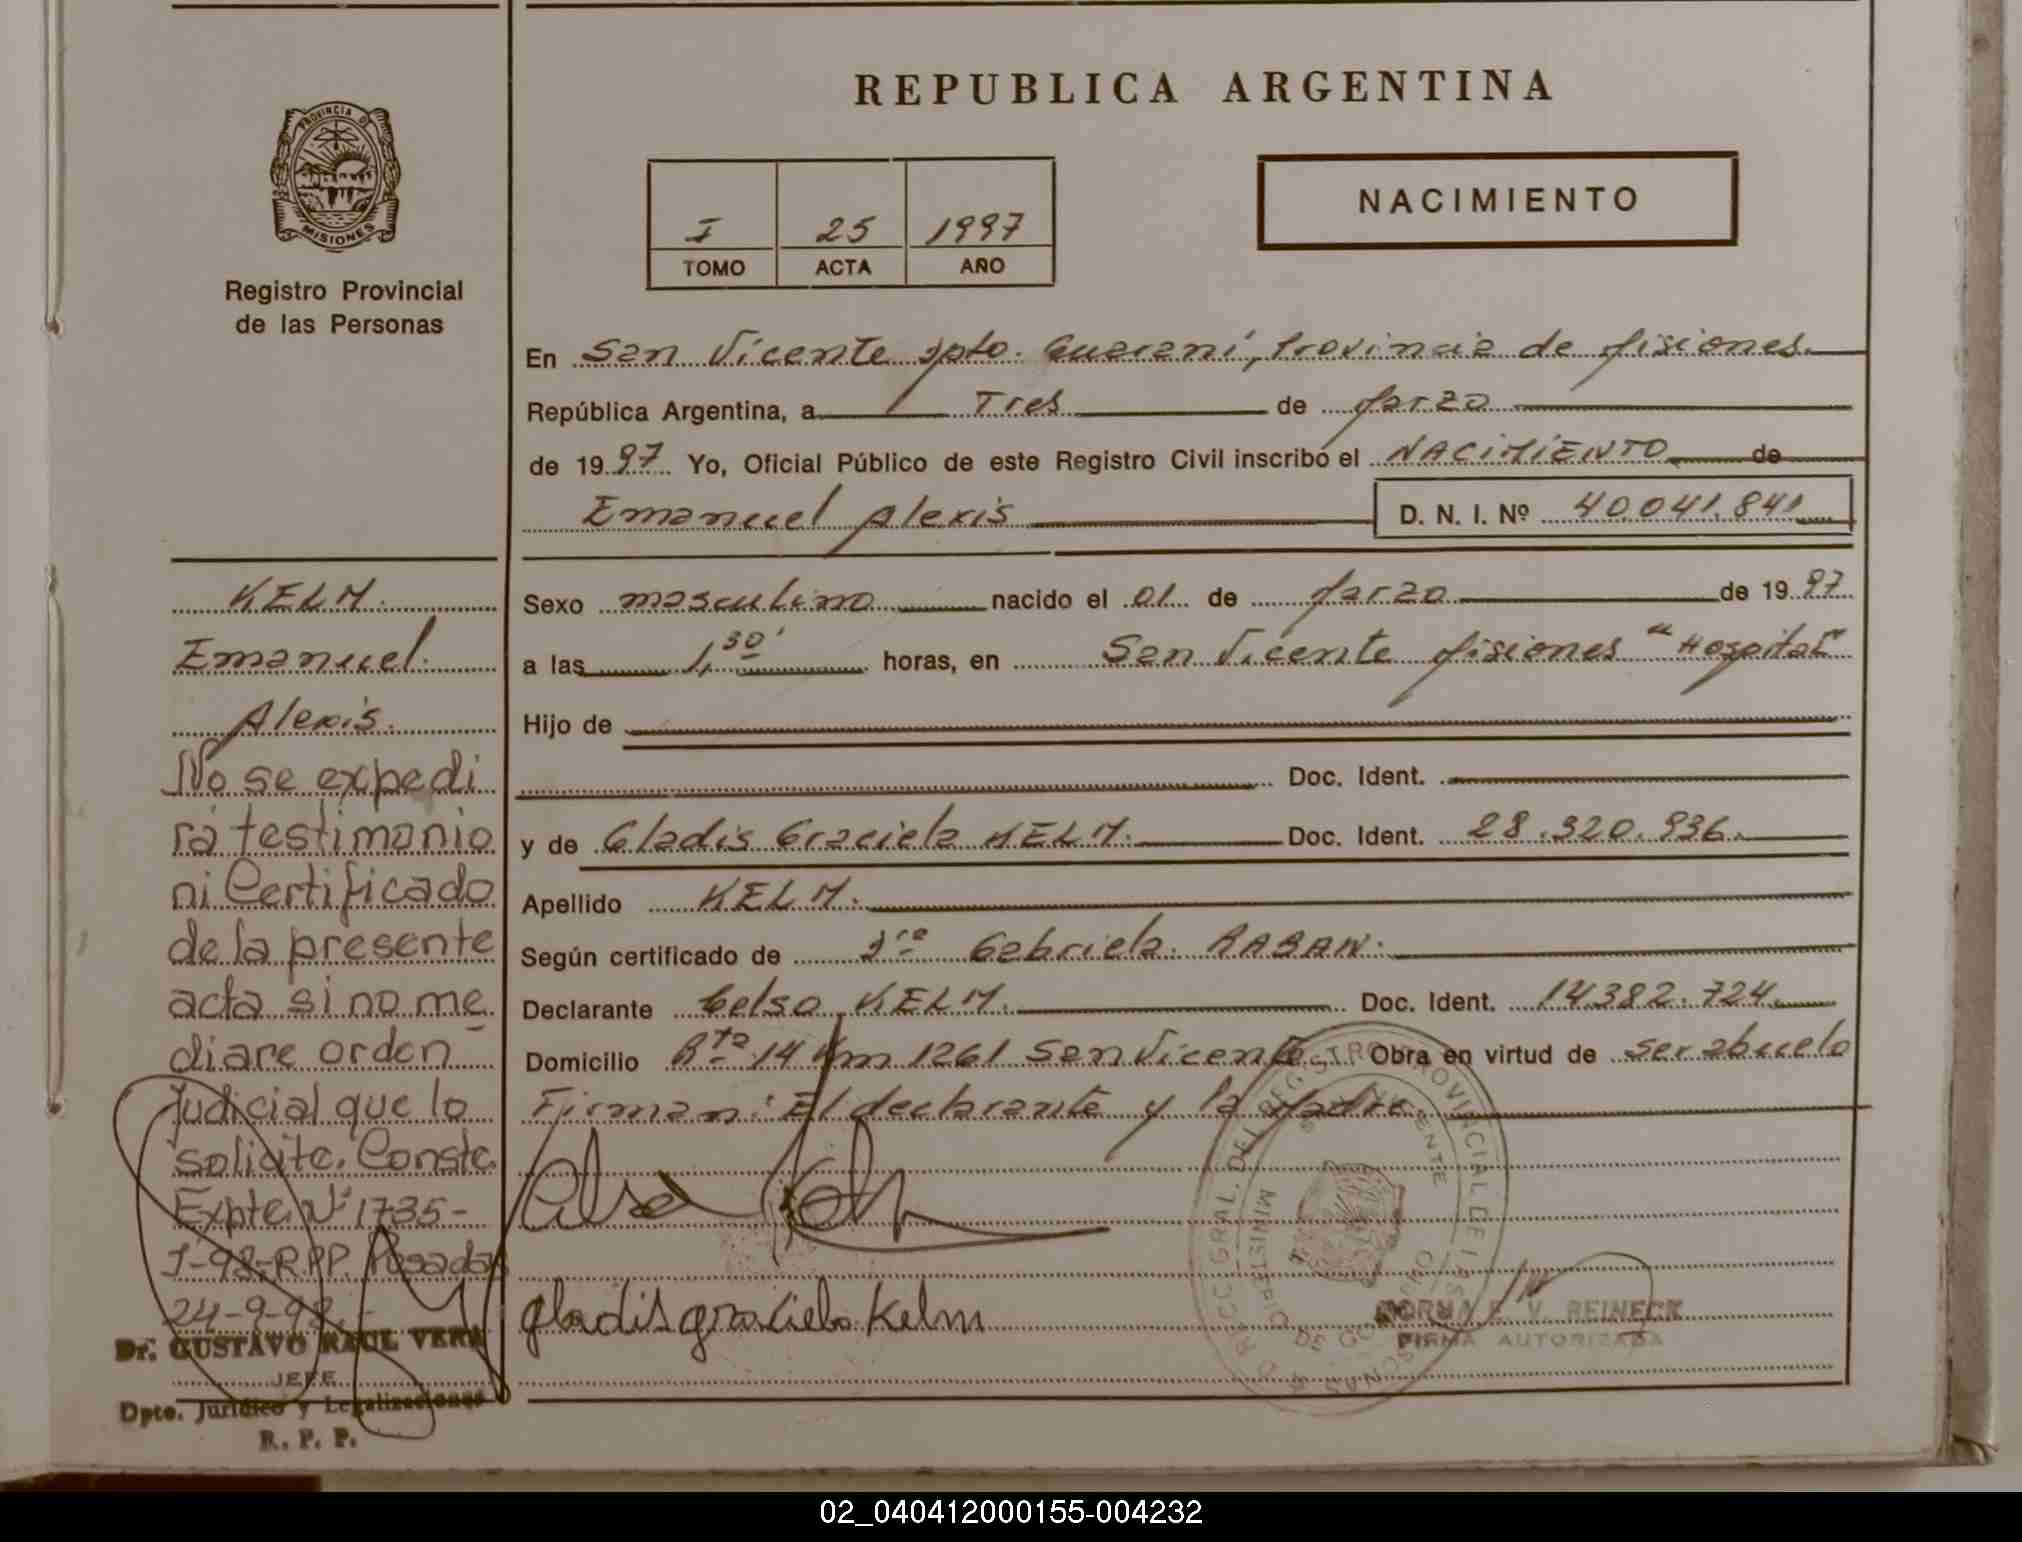 REPUBLICA ARGENTINA
PROVINCIA DE
MISIONES
Registro Provincial
de las Personas
I 25 1997
TOMO ACTA AÑO
NACIMIENTO
En San Vicente Dpto. Guaraní, Provincia de Misiones.
República Argentina, a Tres de Marzo
de 1997 Yo, Oficial Público de este Registro Civil inscribo el NACIMIENTO de
Emanuel Alexis D. N. I. Nº 40.041.841
KELM.
Emanuel.
Alexis.
Sexo masculino nacido el 01 de Marzo de 1997
a las 1,30' horas, en San Vicente Misiones "Hospital"
Hijo de
Doc. Ident.
y de Gladis Graciela KELM. Doc. Ident. 28.920.936.
Apellido KELM.
Según certificado de Dra Gabriela. RABAN.
Declarante Celso KELM. Doc. Ident. 14.382.724.
Domicilio Rta 14 Km 1261 San Vicente. Obra en virtud de ser abuelo
Firman: El declarante y la Madre.
No se expedi
rá testimonio
ni Certificado
de la presente
acta si no me
diare orden
Judicial que lo
solicite. Conste.
Expte. Nº 1735-
J-98-R.P.P. Posadas
24-9-98.-
Dr. GUSTAVO RAUL VERA
JEFE
Dpto. Jurídico y Legalizaciones
R. P. P.
Celso Kelm
gladis graciela Kelm
NORMA E. V. REINECK
FIRMA AUTORIZADA
02_040412000155-004232